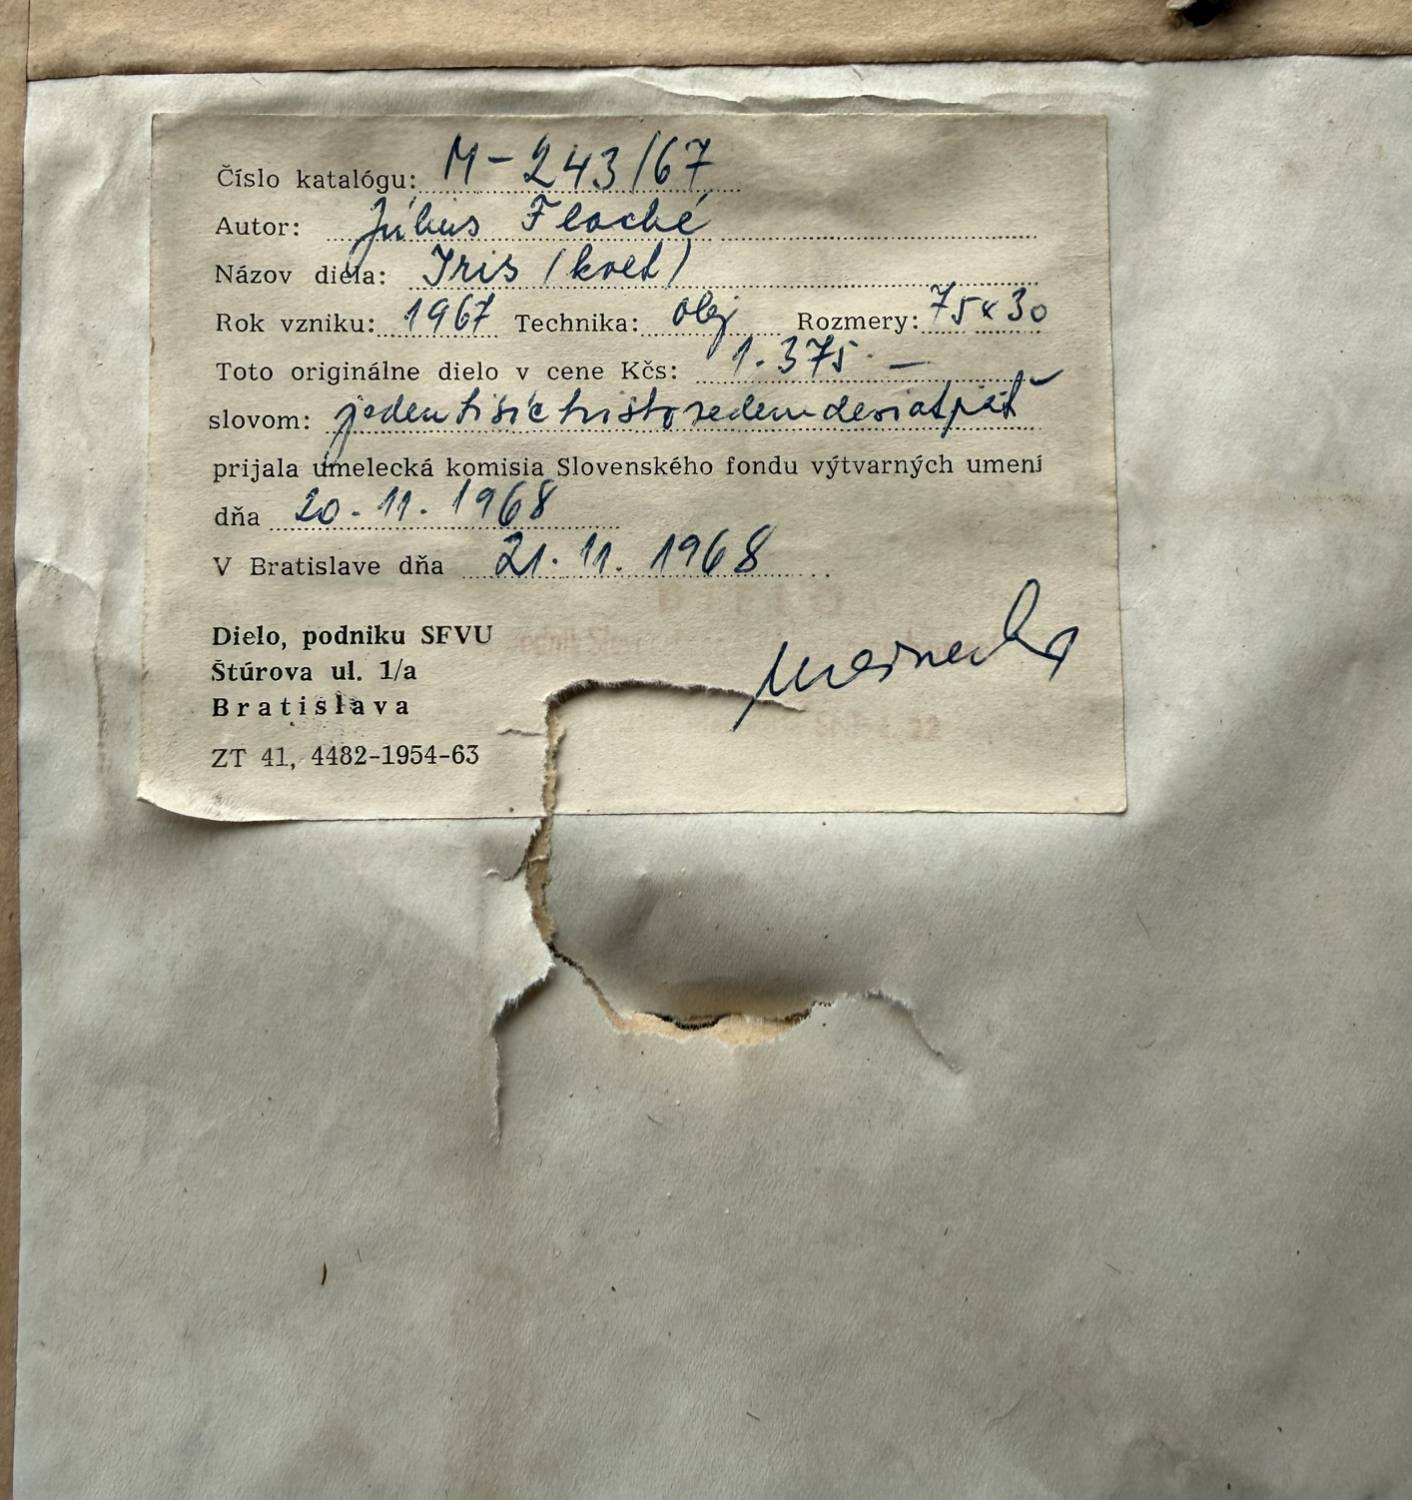 Číslo katalógu: M-243/67
Autor: Július Flaché
Názov diela: Iris (kvet)
Rok vzniku: 1967 Technika: olej Rozmery: 75x30
Toto originálne dielo v cene Kčs: 1.375.—
slovom: jedentisíctristosedemdesiatpäť
prijala umelecká komisia Slovenského fondu výtvarných umení
dňa 20.11.1968
V Bratislave dňa 21.11.1968
DIELO
Dielo, podniku SFVU
Štúrova ul. 1/a
Bratislava
22
ZT 41, 4482-1954-63